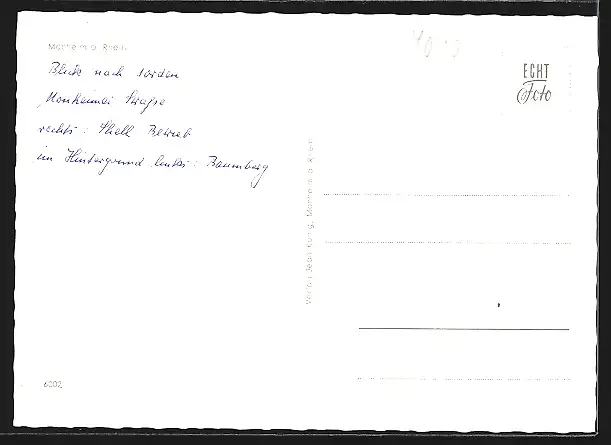 Monheim a. Rhein
Blick nach Norden
Monheimer Straße
rechts: Shell Betrieb
im Hintergrund links: Baumberg
ECHT
Foto
Verlag Jean König, Monheim a. Rhein
6002